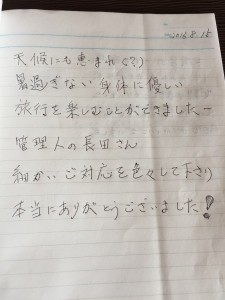 2016.8.15
天候にも恵まれ(?)
暑過ぎない身体に優しい
旅行を楽しむことができましたー
管理人の長田さん
細かいご対応を色々して下さり
本当にありがとうございました!